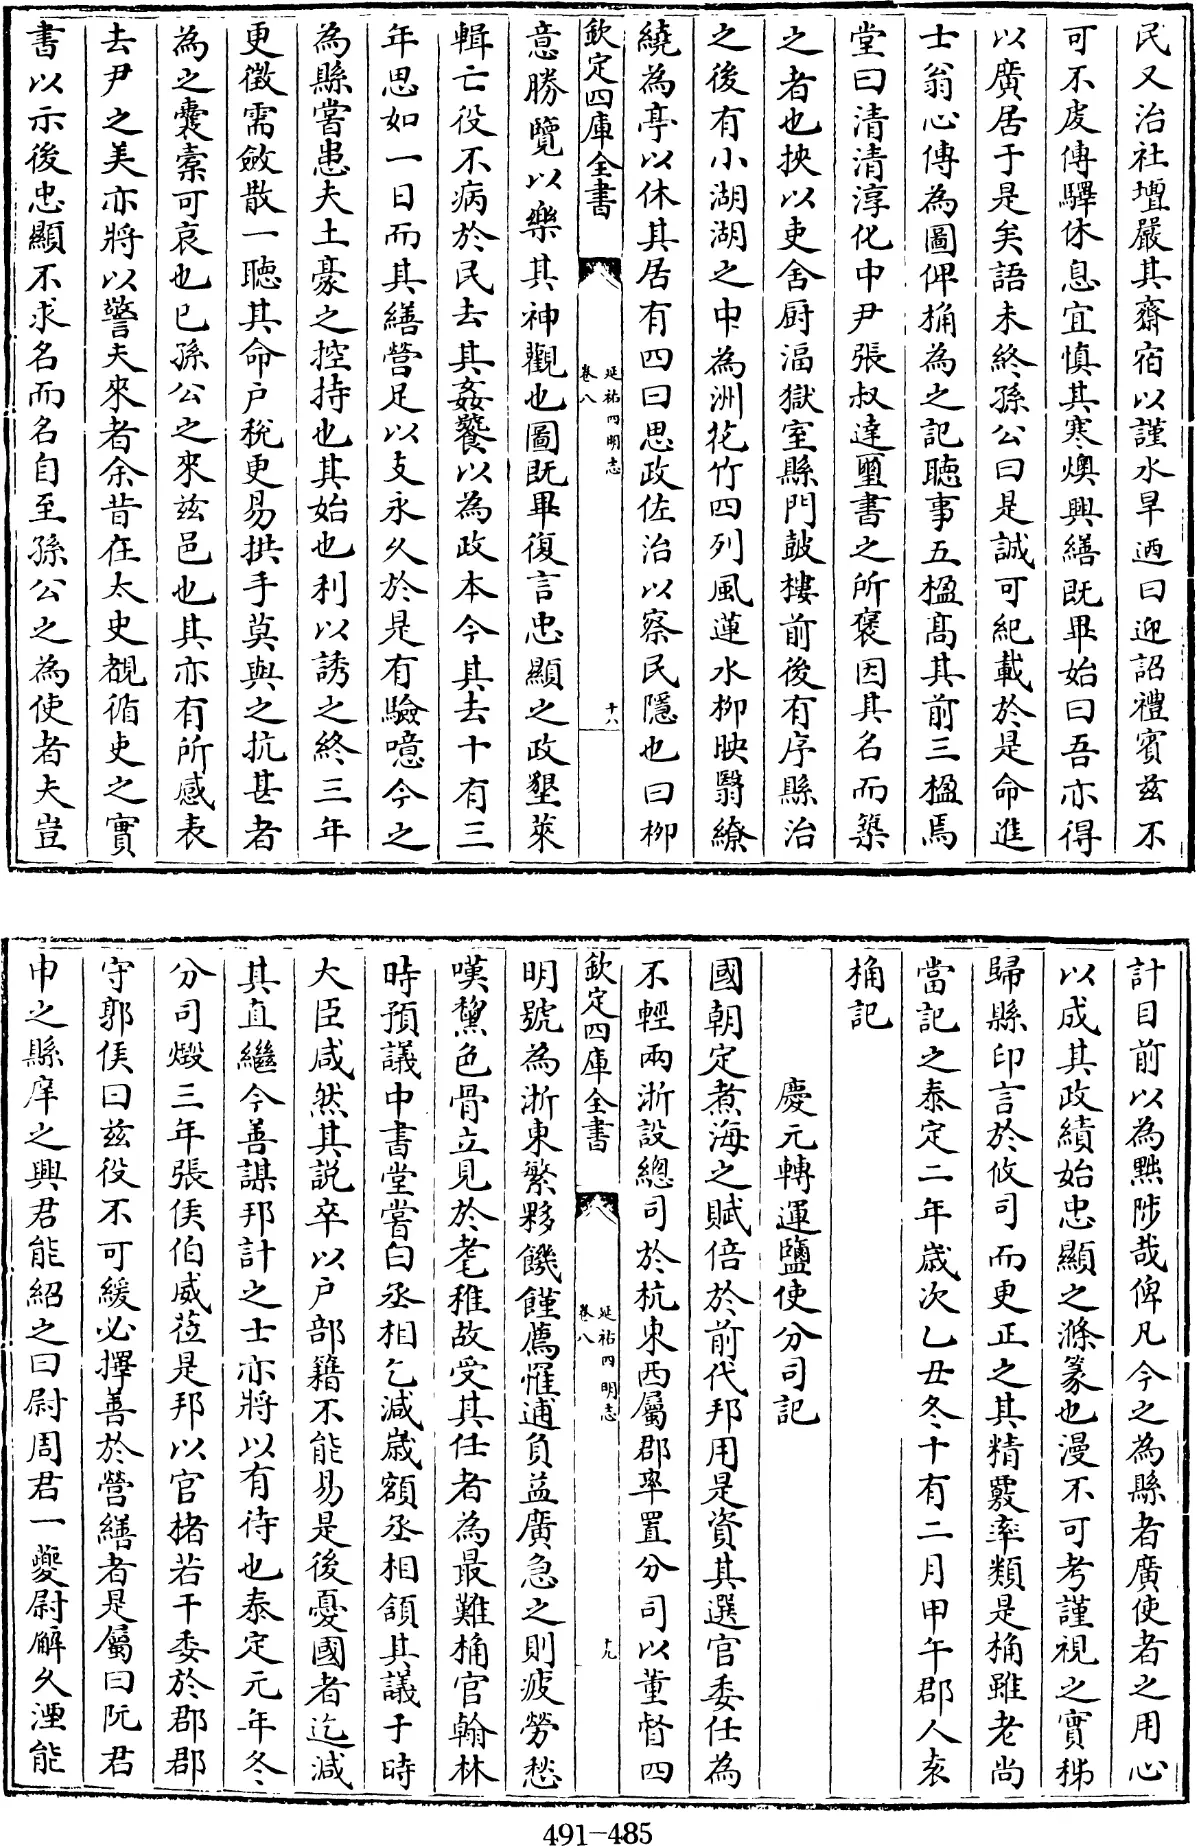 民又治社壇嚴其齋宿以謹水旱迺曰迎詔禮賓兹不
可不䖍傳驛休息宜慎其寒燠興繕既畢始曰吾亦得
以廣居于是矣語未終孫公曰是誠可紀載於是命進
士翁心傳為圖俾桷為之記聽事五楹髙其前三楹焉
堂曰清清淳化中尹張叔達璽書之所襃因其名而築
之者也挾以吏舍厨湢獄室縣門鼓樓前後有序縣治
之後有小湖湖之中為洲花竹四列風蓮水柳映翳繚
繞為亭以休其居有四曰思政佐治以察民隱也曰柳
欽定四庫全書
延祐四明志
卷八
十八
意勝覽以樂其神觀也圖既畢復言忠顯之政墾萊
輯亡役不病於民去其姦饕以為政本今其去十有三
年思如一日而其繕營足以支永久於是有驗噫今之
為縣嘗患夫土豪之控持也其始也利以誘之終三年
更徵需斂散一聽其命户稅更易拱手莫與之抗甚者
為之囊槖可哀也已孫公之來兹邑也其亦有所感表
去尹之美亦將以警夫來者余昔在太史覩循吏之實
書以示後忠顯不求名而名自至孫公之為使者夫豈
計目前以為黜陟哉俾凡今之為縣者廣使者之用心
以成其政績始忠顯之滌篆也漫不可考謹視之實秭
歸縣印言於攸司而更正之其精覈率類是桷雖老尚
當記之泰定二年歳次乙丑冬十有二月甲午郡人袁
桷記
慶元轉運鹽使分司記
國朝定煮海之賦倍於前代邦用是資其選官委任為
不輕兩浙設總司於杭東西屬郡率置分司以董督四
欽定四庫全書
延祐四明志
卷八
十九
明號為浙東繁夥饑饉薦罹逋負益廣急之則疲勞愁
嘆黧色骨立見於耄稚故受其任者為最難桷官翰林
時預議中書堂嘗白丞相乞減歳額丞相頷其議于時
大臣咸然其説卒以户部籍不能易是後憂國者迄減
其直繼今善謀邦計之士亦將以有待也泰定元年冬
分司燬三年張侯伯威莅是邦以官楮若干委於郡郡
守郭侯曰兹役不可緩必擇善於營繕者是屬曰阮君
申之縣庠之興君能紹之曰尉周君一夔尉廨久湮能
491-485